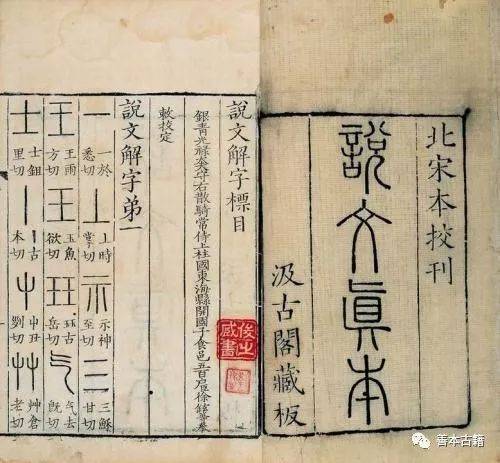 北宋本挍刊
說文眞本
汲古閣藏板
說文解字標目
銀青光祿大夫守右散騎常侍上柱國東海縣開國子食邑五百戶臣徐鉉等奉
敕挍定
說文解字弟一
一 一於悉切 丄 上時掌切 示 示神至切 三 三穌甘切
王 王雨方切 玉 玉魚欲切 珏 珏古岳切 气 气去旣切
士 士鉏里切 丨 丨古本切 屮 屮丑劉切 艸 艸倉老切
善本古籍